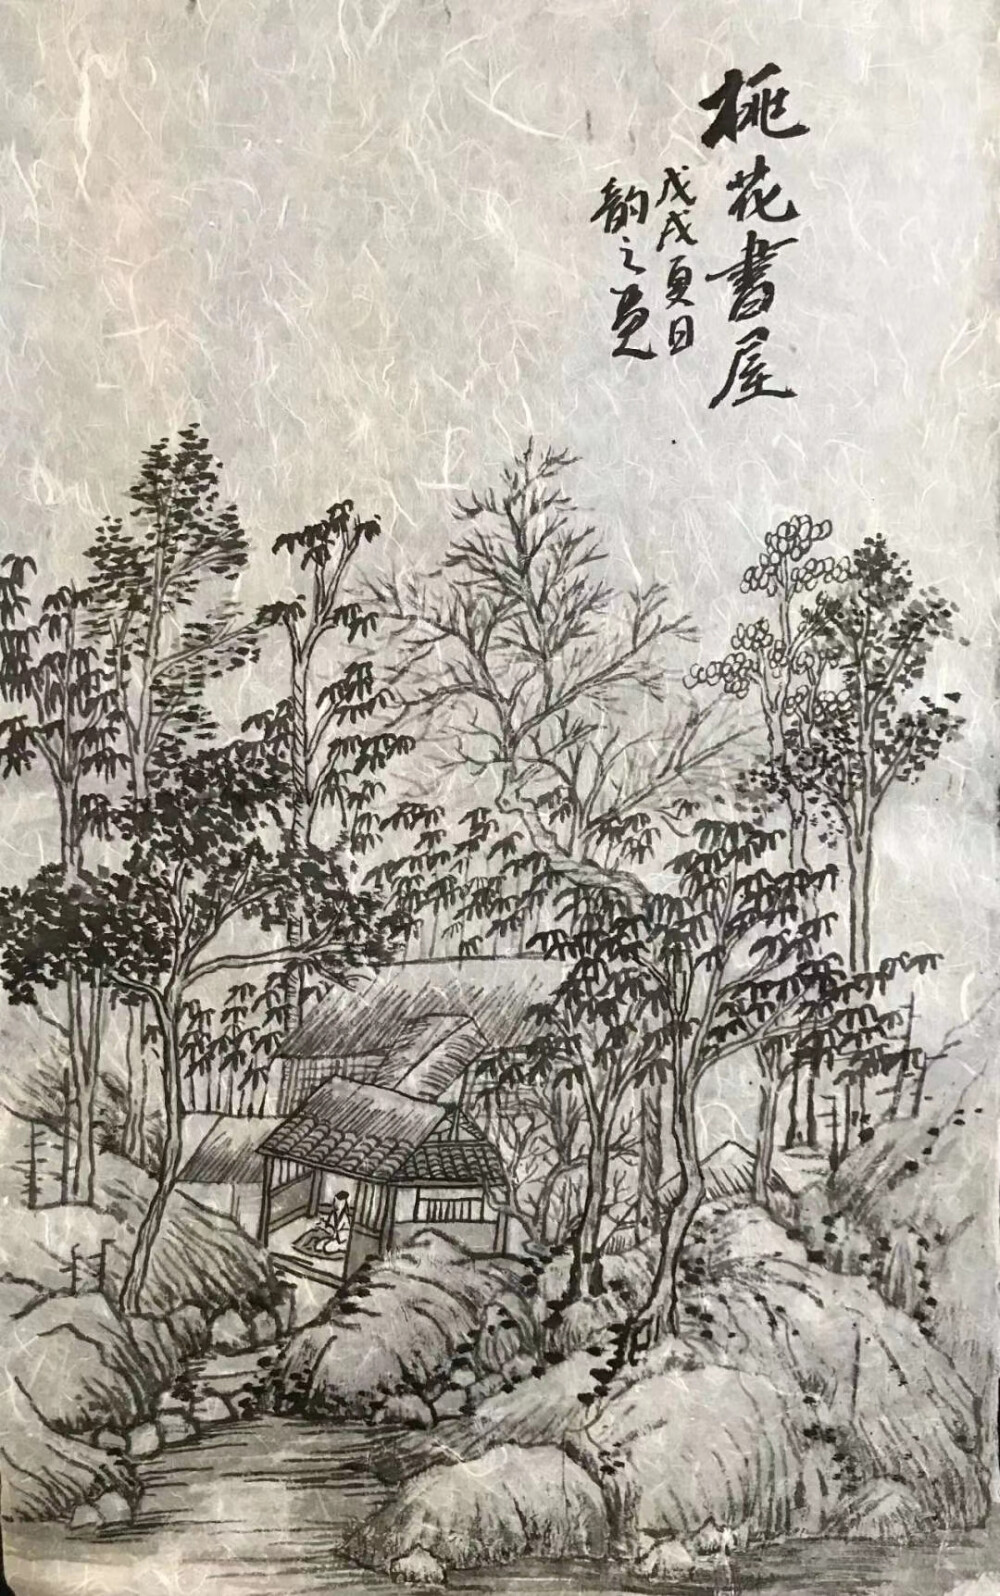 桃花書屋
戊戌夏日
韵之